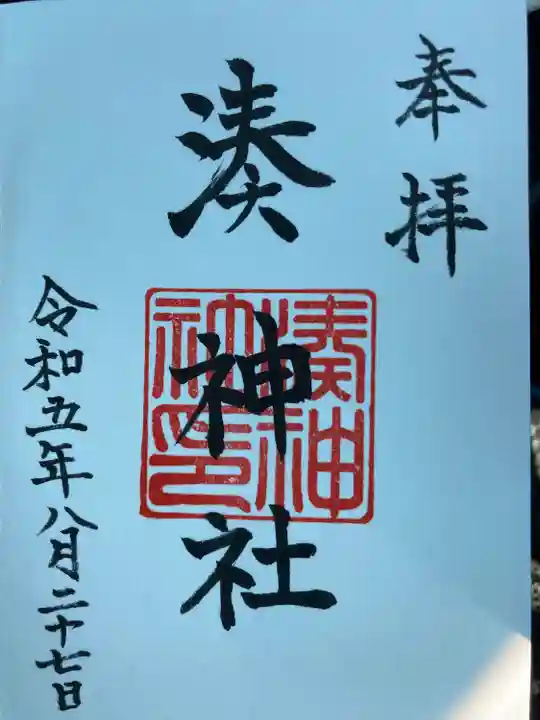 奉拝
湊神社
湊神社印
令和五年八月二十七日